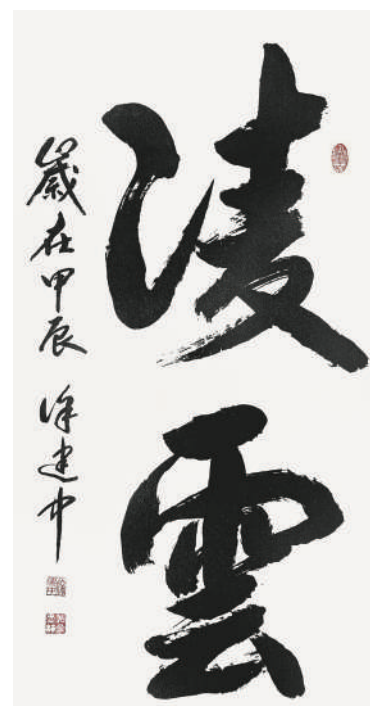 淩雲
歲在甲辰 徐建中